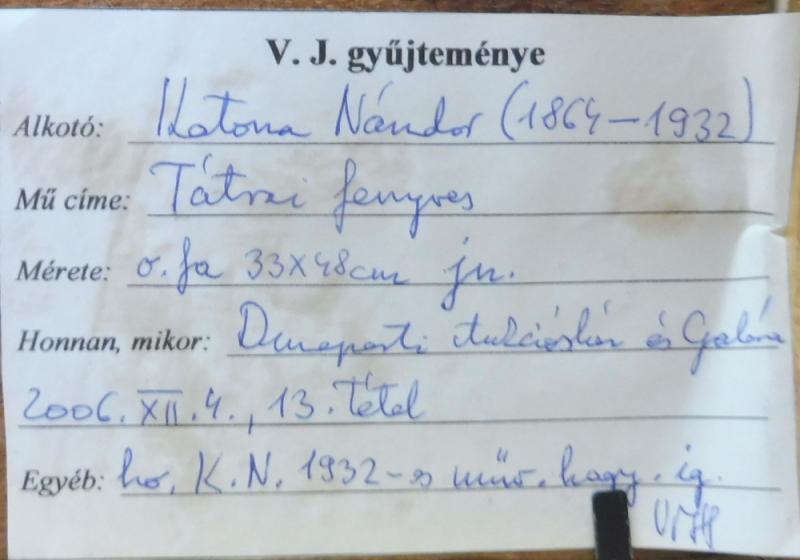 V. J. gyűjteménye
Alkotó: Katona Nándor (1864–1932)
Mű címe: Tátrai fenyves
Mérete: o. fa 33x48cm jn.
Honnan, mikor: Dunaparti Aukciósház és Galéria
2006. XII. 4., 13. tétel
Egyéb: K.N. 1932-es műv. hagy. ig.